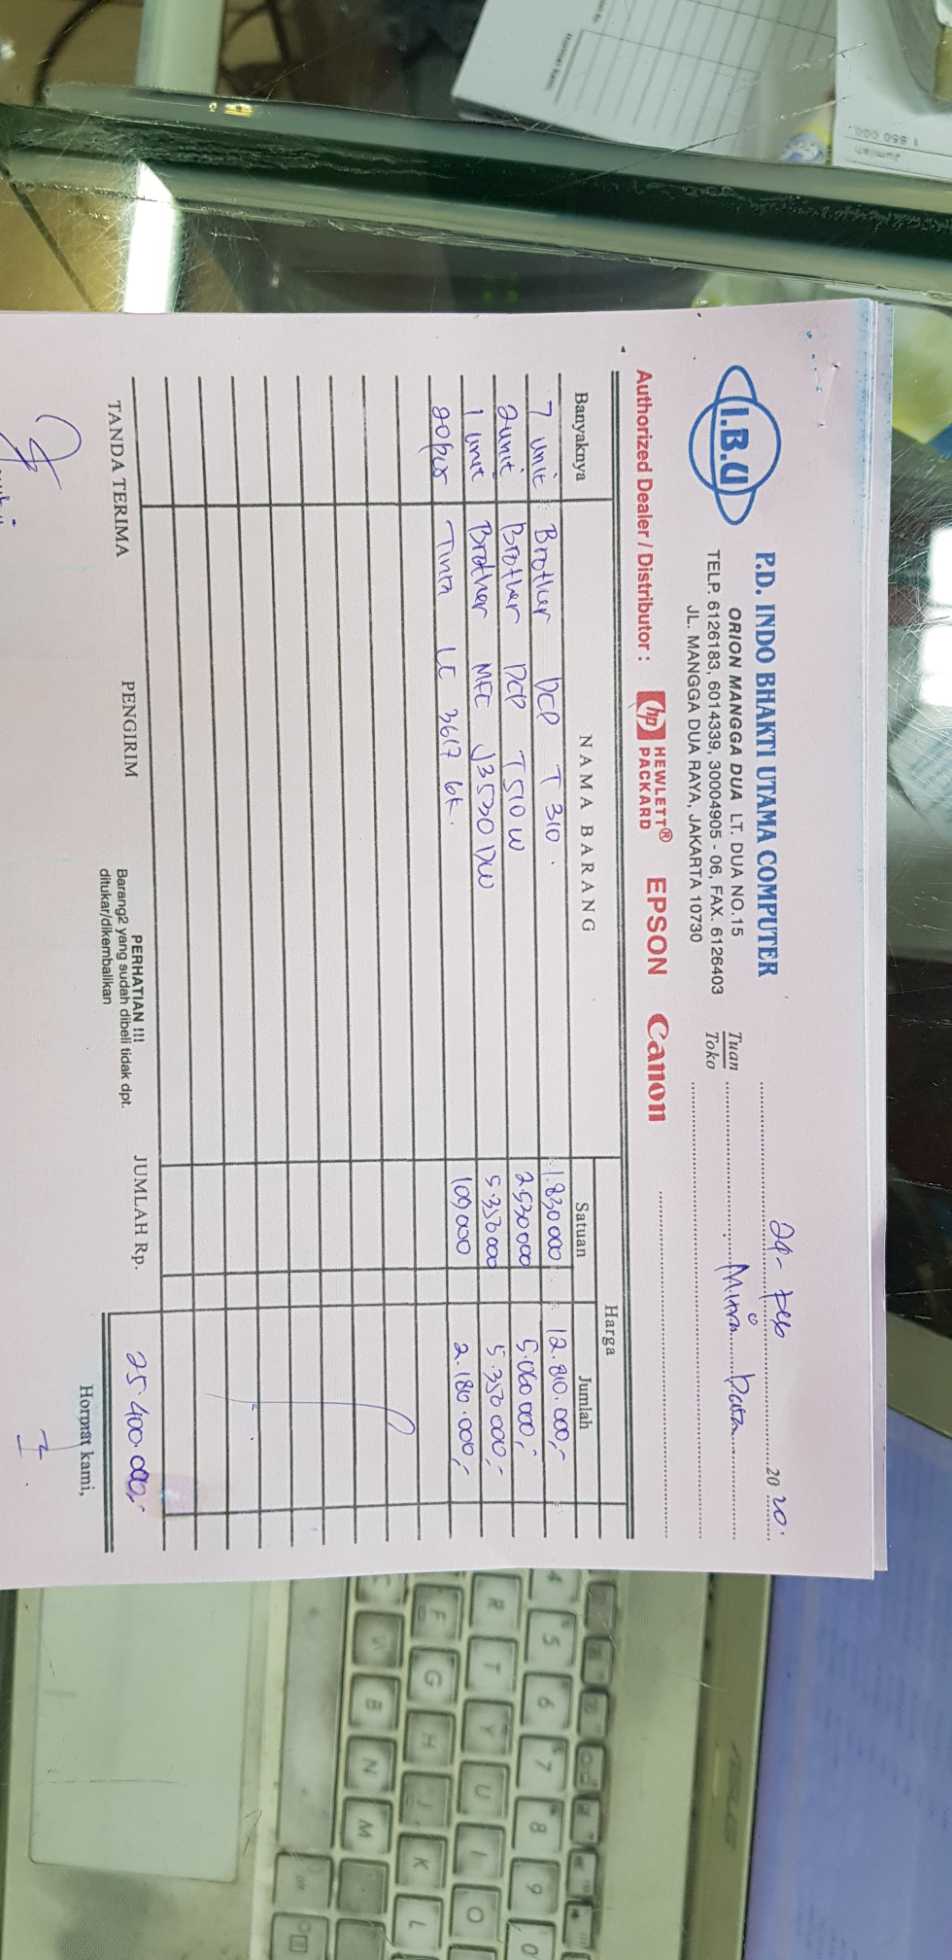 I.B.U
P.D. INDO BHAKTI UTAMA COMPUTER
ORION MANGGA DUA LT. DUA NO.15
TELP. 6126183, 6014339, 30004905 - 06, FAX. 6126403
JL. MANGGA DUA RAYA, JAKARTA 10730
24 - Feb 2020.
Tuan
Toko
Mitra Data
Authorized Dealer / Distributor : hp HEWLETT® PACKARD EPSON Canon
Banyaknya NAMA BARANG Harga
Satuan Jumlah
7 unit Brother DCP T 310. 1.830 000 12.810.000,-
2 unit Brother DCP T510 W 2.530 000 5.060 000,-
1 unit Brother MFC J3530 DW 5.350 000 5.350 000,-
20 pcs Tinta LC 3617 BK. 109,000 2.180.000,-
TANDA TERIMA PENGIRIM
PERHATIAN !!!
Barang2 yang sudah dibeli tidak dpt.
ditukar/dikembalikan
JUMLAH Rp. 25.400.000,-
Hormat kami,
Jumlah
1 850 000,
4 5 6 7 8 9 0
R T Y U I O
F G H J K L
V B N M